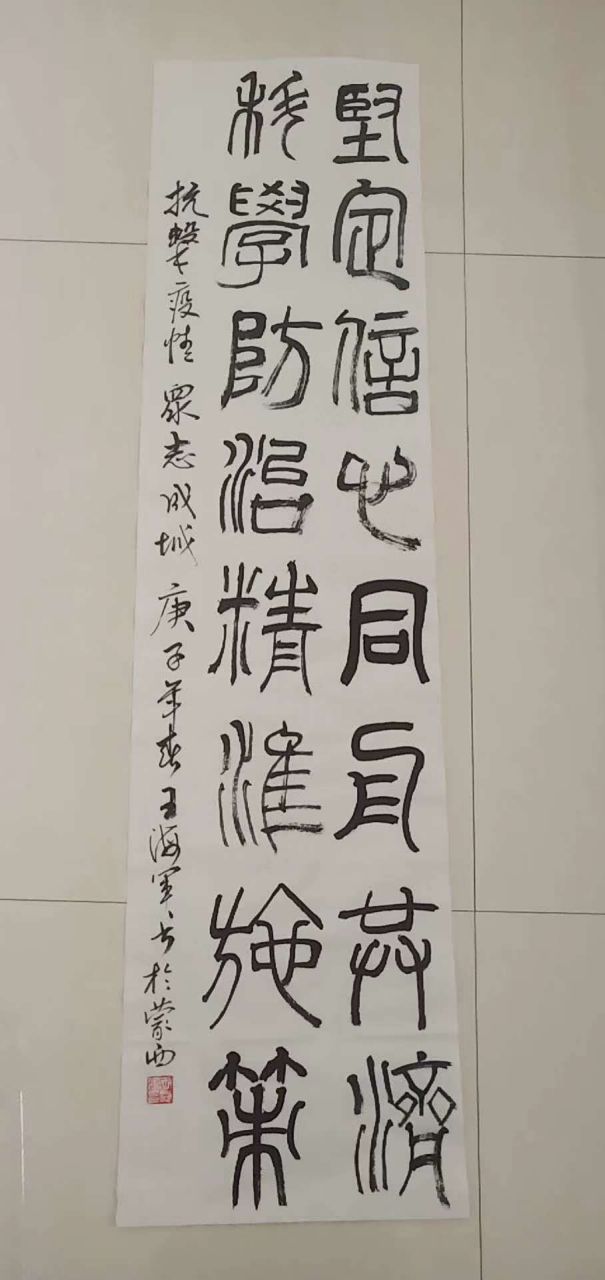 堅定信心同舟共濟
科學防治精准施策
抗擊疫情 眾志成城 庚子年春王海軍書於蒙西